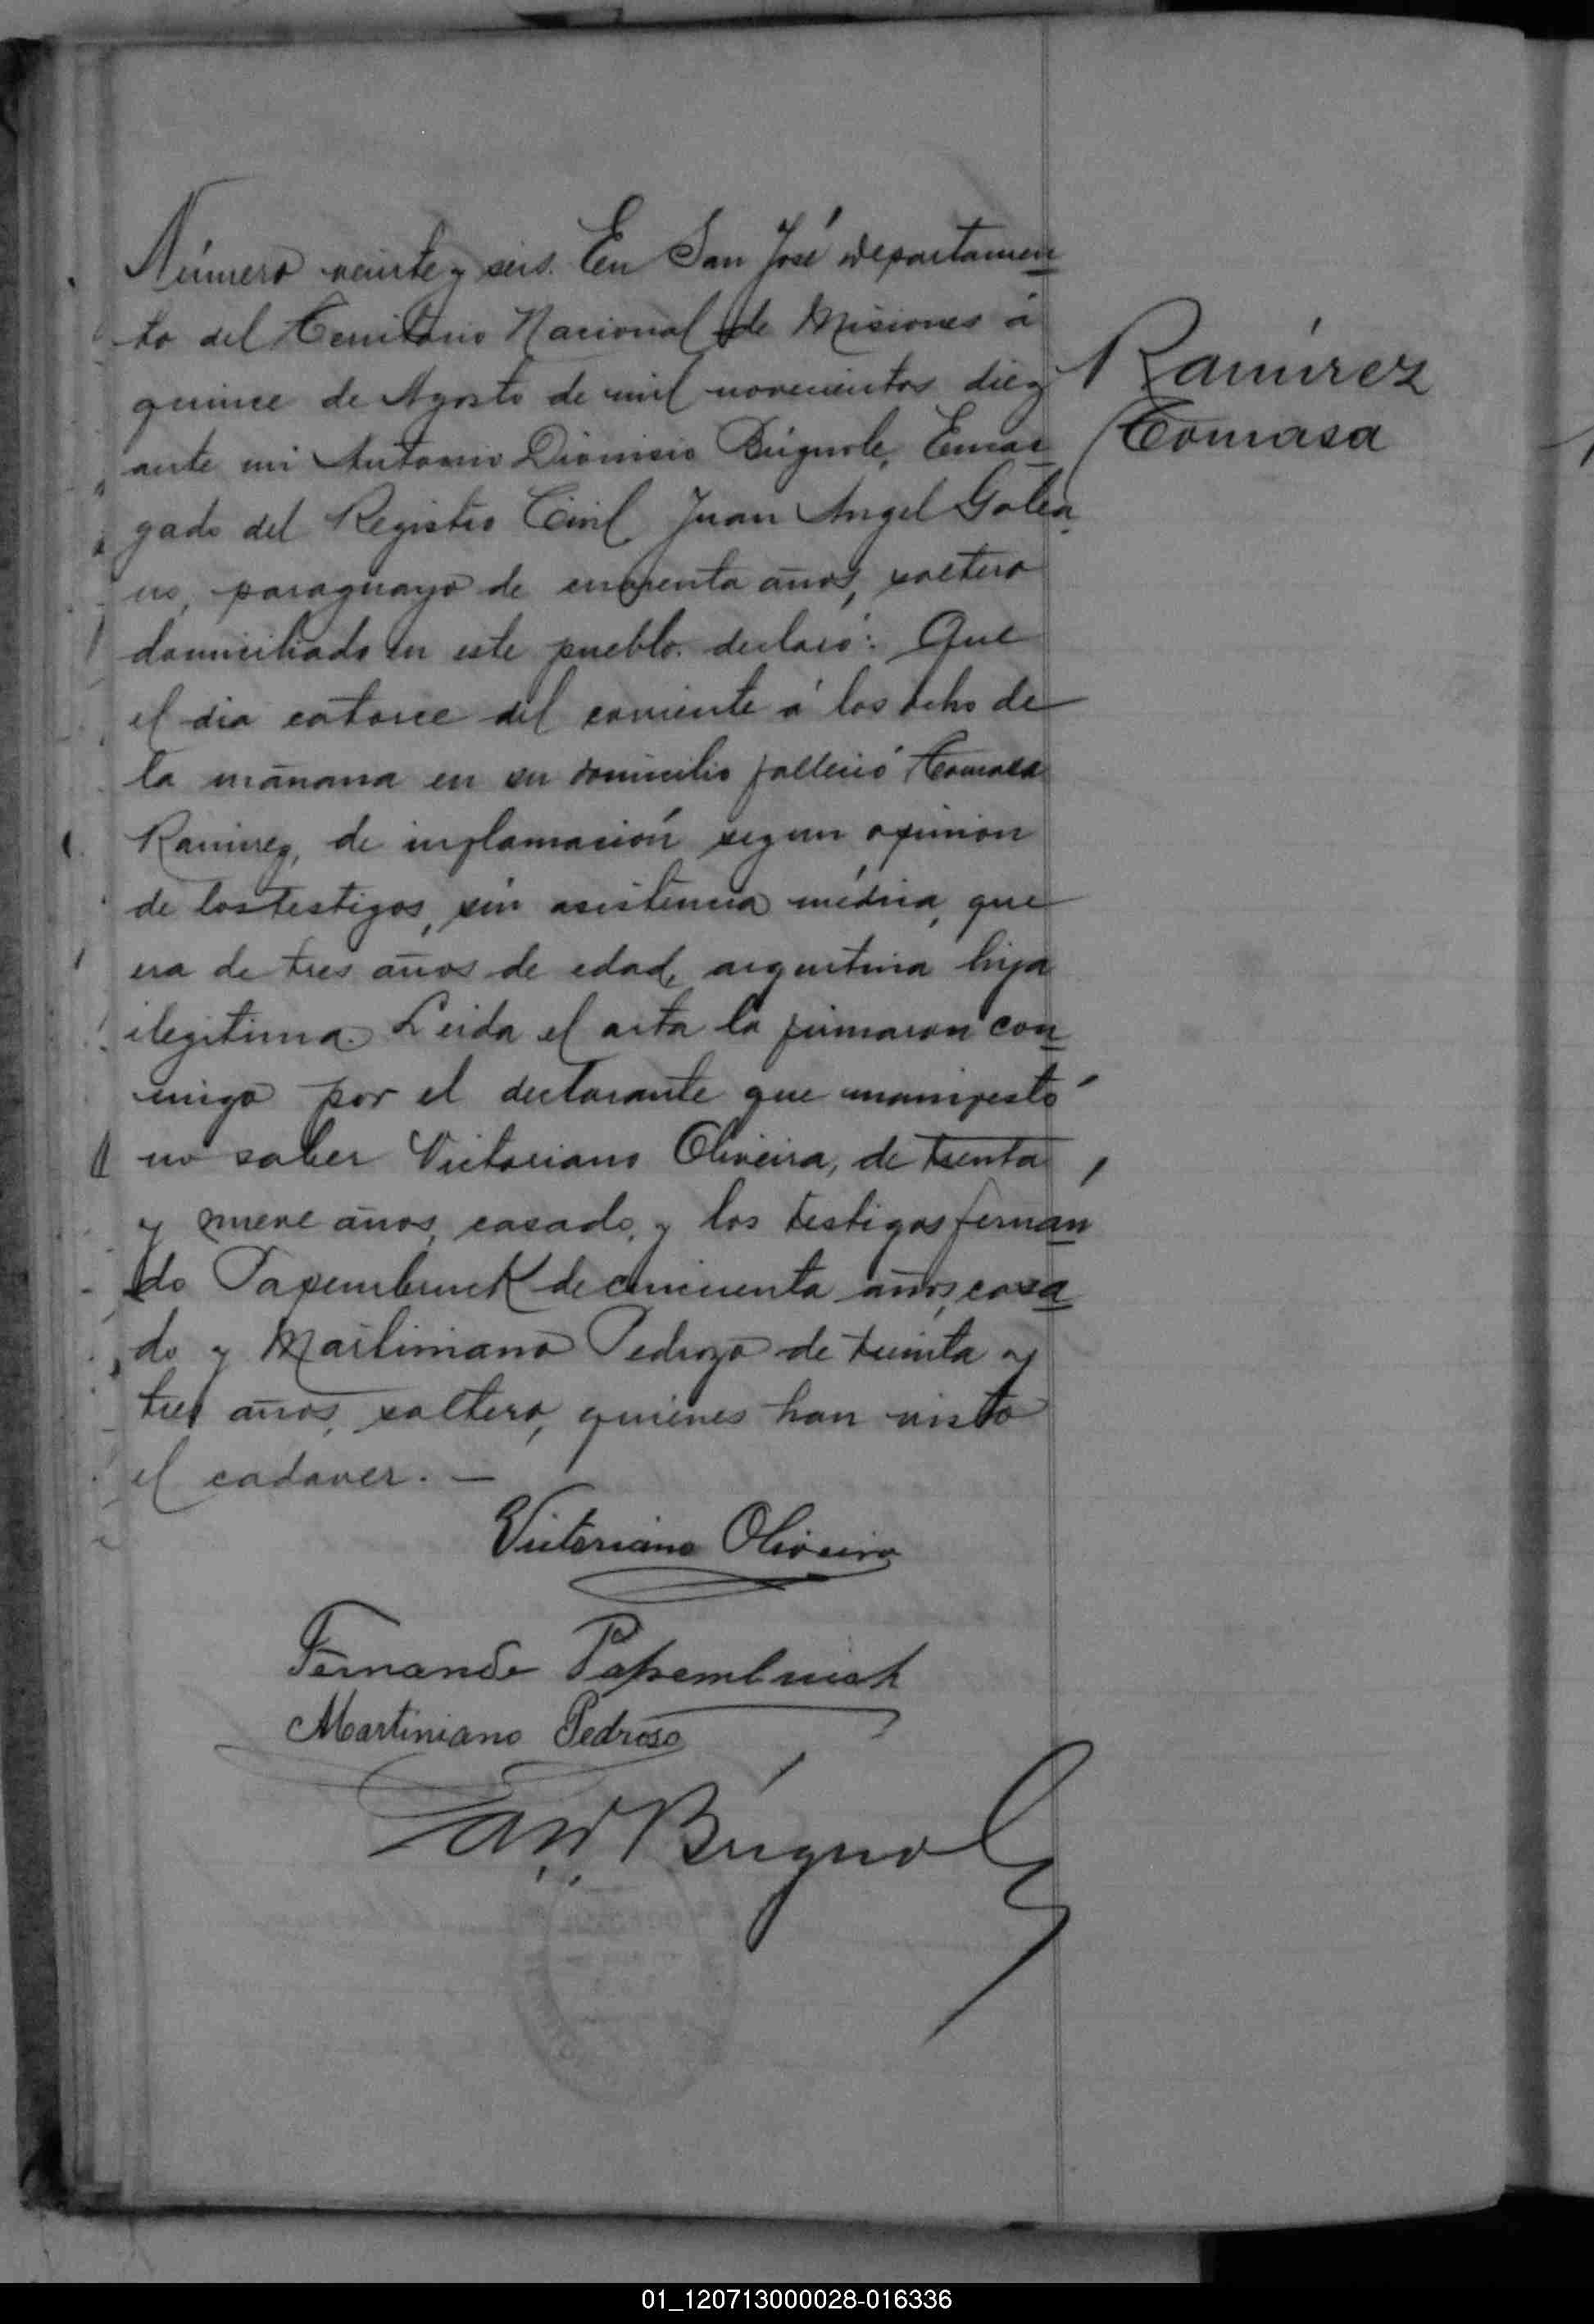 Número veinte y seis. En San José departamen
to del Territorio Nacional de Misiones á
quince de Agosto de mil novecientos diez
ante mi Antonio Dionisio Brignole, Encar
gado del Registro Civil, Juan Angel Galea
no, paraguayo de cuarenta años, soltero
domiciliado en este pueblo. declaró: Que
el dia catorce del corriente á las ocho de
la mañana en su domicilio falleció Tomasa
Ramirez, de inflamación segun opinion
de los testigos, sin asistencia médica, que
era de tres años de edad, argentina hija
ilegitima. Leida el acta la firmaron con
migo por el declarante que manifestó
no saber Victoriano Oliveira, de treinta
y nueve años, casado, y los testigos Fernan
do Papembruck de cincuenta años, casa
do y Martiniano Pedrozo de treinta y
tres años, soltero, quienes han visto
el cadaver. —
Ramírez
Tomasa
Victoriano Oliveira
Fernando
Martiniano Pedroso
Brignole
01_120713000028-016336